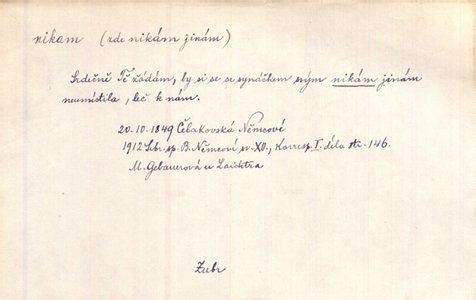 nikam (zde nikám jinám)
Srdečně Tě žádám, by si se se synáčkem svým nikám jinám
neumístila, leč k nám.
20.10.1849 Čelakovská Němcové
1912 Sebr. sp. B. Němcové sv. XII., Korresp. I. díla str. 146.
M. Gebauerová u Laichtra
Zubr